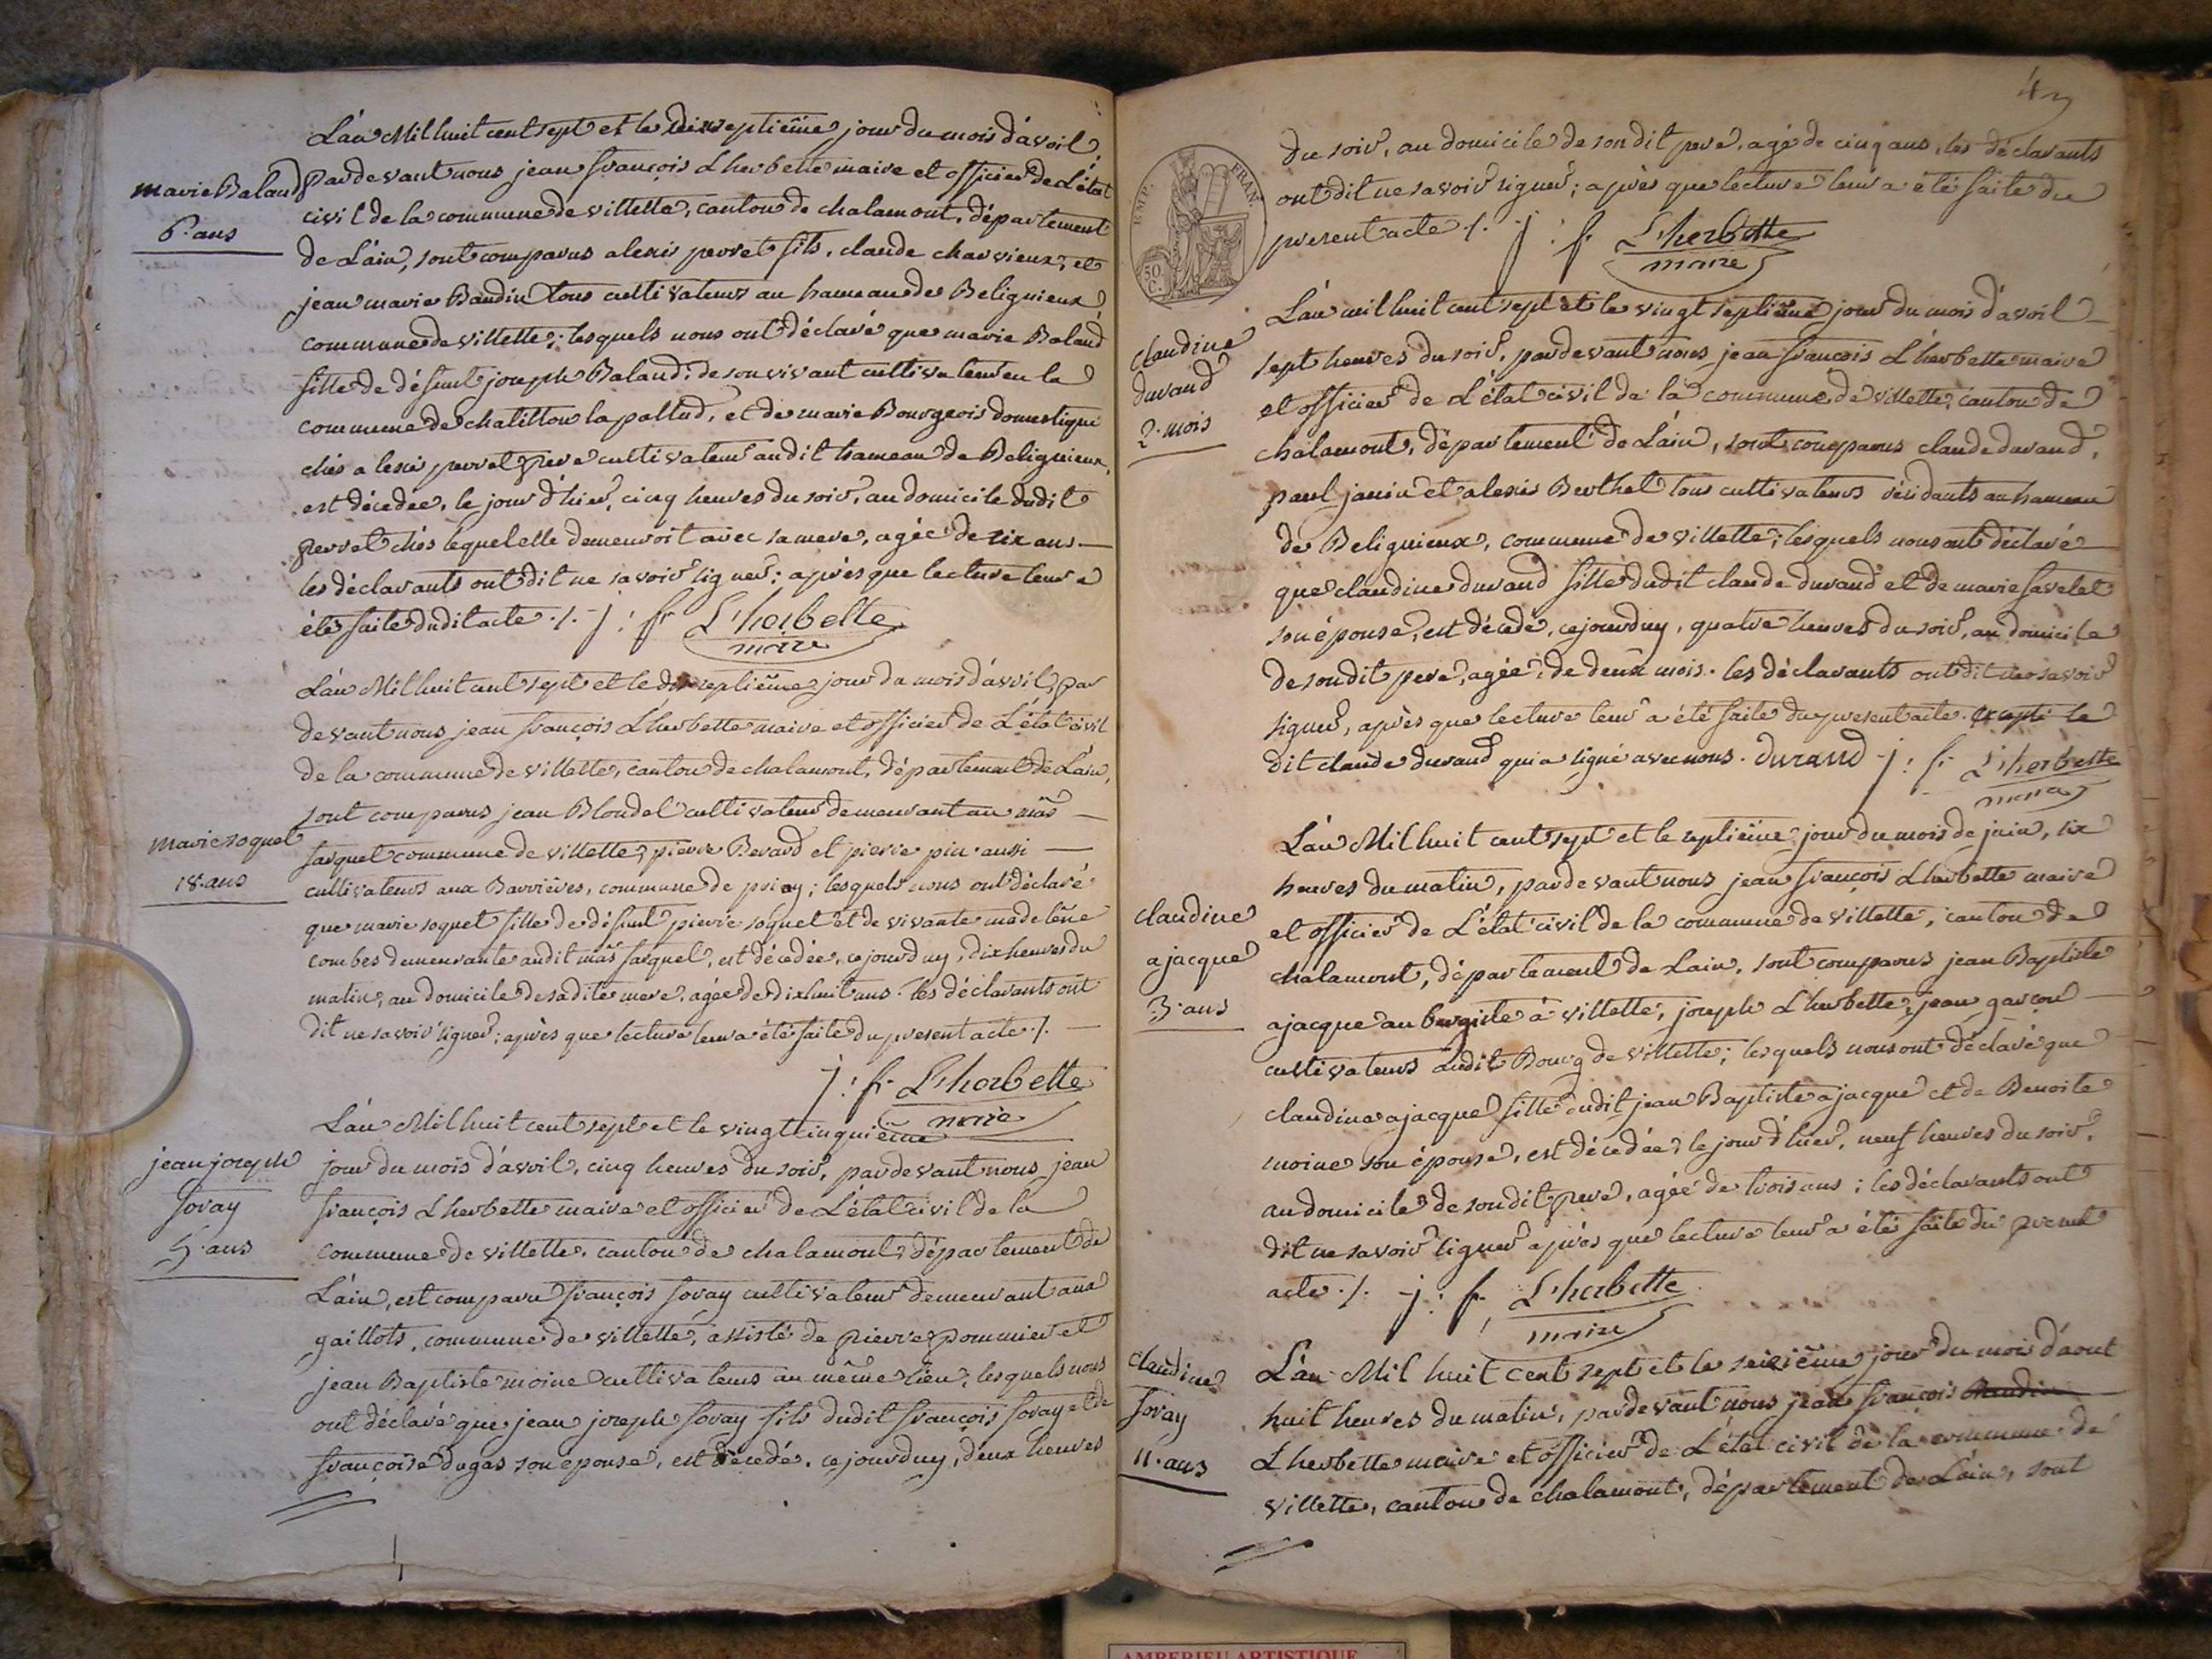 L'an Mil huit cent sept et le dix septième jour du mois d'avril
pardevant nous jean françois Lherbette maire et officier de L'état
marie Baland
6. ans
civil de la commune de villette, canton de chalamont, département
de L'ain, sont comparus alexis perret fils, claude charvieux, et
jean marie Baudin tous cultivateurs au hameau de Belignieux
commune de villette; lesquels nous ont déclaré que marie Baland
fille de défunt joseph Baland, de son vivant cultivateur en la
commune de chatillon la pallud, et de marie Bourgeois domestique
chés alexis perret pere cultivateur audit hameau de Belignieux,
est décedée, le jour d'hier, cinq heures du soir, au domicile dudit
perret chés lequel elle demeuroit avec sa mere, agée de six ans
les déclarants ont dit ne savoir signer; après que lecture leur a
été faite dudit acte ./. j : fr L'herbette
maire
L'an Mil huit cent sept et le dix septième jour du mois d'avril, par
devant nous jean françois Lherbette maire et officier de L'état civil
de la commune de villette, canton de chalamont, département de L'ain,
sont comparus jean Blondel cultivateur demeurant au mâs
marie soquet
18. ans
farquet commune de villette, pierre Berard et pierre pin aussi
cultivateurs aux Barrières, commune de priay; lesquels nous ont déclaré
que marie soquet fille de défunt pierre soquet et de vivante madelène
combes demeurante audit mâs farquet, est décedée, cejourduy, dix heures du
matin, au domicile de sadite mere, agée de dix huit ans. les déclarants ont
dit ne savoir signer; après que lecture leur a été faite du present acte ./.
j : fr L'herbette
maire
L'an Mil huit cent sept et le vingt cinquième
jean joseph
foray
5. ans
jour du mois d'avril, cinq heures du soir, pardevant nous jean
françois Lherbette maire et officier de L'état civil de la
commune de villette, canton de chalamont, département de
L'ain, est comparu françois foray cultivateur demeurant aux
gaillots, commune de villette, assisté de pierre pommier et
jean Baptiste moine cultivateurs au même lieu, lesquels nous
ont déclaré que jean joseph foray fils dudit françois foray et de
françoise dugas son épouse, est décedé, cejourduy, deux heures
du soir, au domicile de son dit pere, agé de cinq ans, les déclarants
EMP. FRAN.
50 C.
ont dit ne savoir signer; après que lecture leur a été faite du
present acte ./. j : fr L'herbette
maire
L'an mil huit cent sept et le vingt septième jour du mois d'avril
claudine
durand
2. mois
sept heures du soir, pardevant nous jean francois Lherbette maire
et officier de L'état civil de la commune de villette, canton de
chalamont, département de L'ain, sont comparus claude durand,
paul janin et alexis Berthet tous cultivateurs résidants au hameau
de Belignieux, commune de villette; lesquels nous ont déclaré
que claudine durand fille dudit claude durand et de marie favelet
son épouse, est décedé, cejourduy, quatre heures du soir, au domicile
de son dit pere, agée, de deux mois. les déclarants ont dit ne savoir
signer, après que lecture leur a été faite du present acte. excepté le
dit claude durand qui a signé avec nous. durand j : fr L'herbette
maire
L'an Mil huit cent sept et le septième jour du mois de juin, six
heures du matin, pardevant nous jean françois Lherbette maire
claudine
ajacque
3. ans
et officier de L'état civil de la commune de villette, canton de
chalamont, département de Lain, sont comparus jean Baptiste
ajacque aubergiste à villette, joseph Lherbette, jean garçon
cultivateurs audit Bourg de villette; lesquels nous ont déclaré que
claudine ajacque fille dudit jean Baptiste ajacque et de Benoite
moine son épouse, est décedée, le jour d'hier, neuf heures du soir,
au domicile de son dit pere, agée de trois ans; les déclarants ont
dit ne savoir signer après que lecture leur a été faite du present
acte ./. j : fr L'herbette
maire
claudine
foray
11. ans
L'an Mil huit cent sept et le seizième jour du mois d'aout
huit heures du matin, pardevant nous jean françois
Lherbette maire et officier de L'état civil de la commune de
villette, canton de chalamont, département de L'ain, sont
AMBERIEU ARTISTIQUE